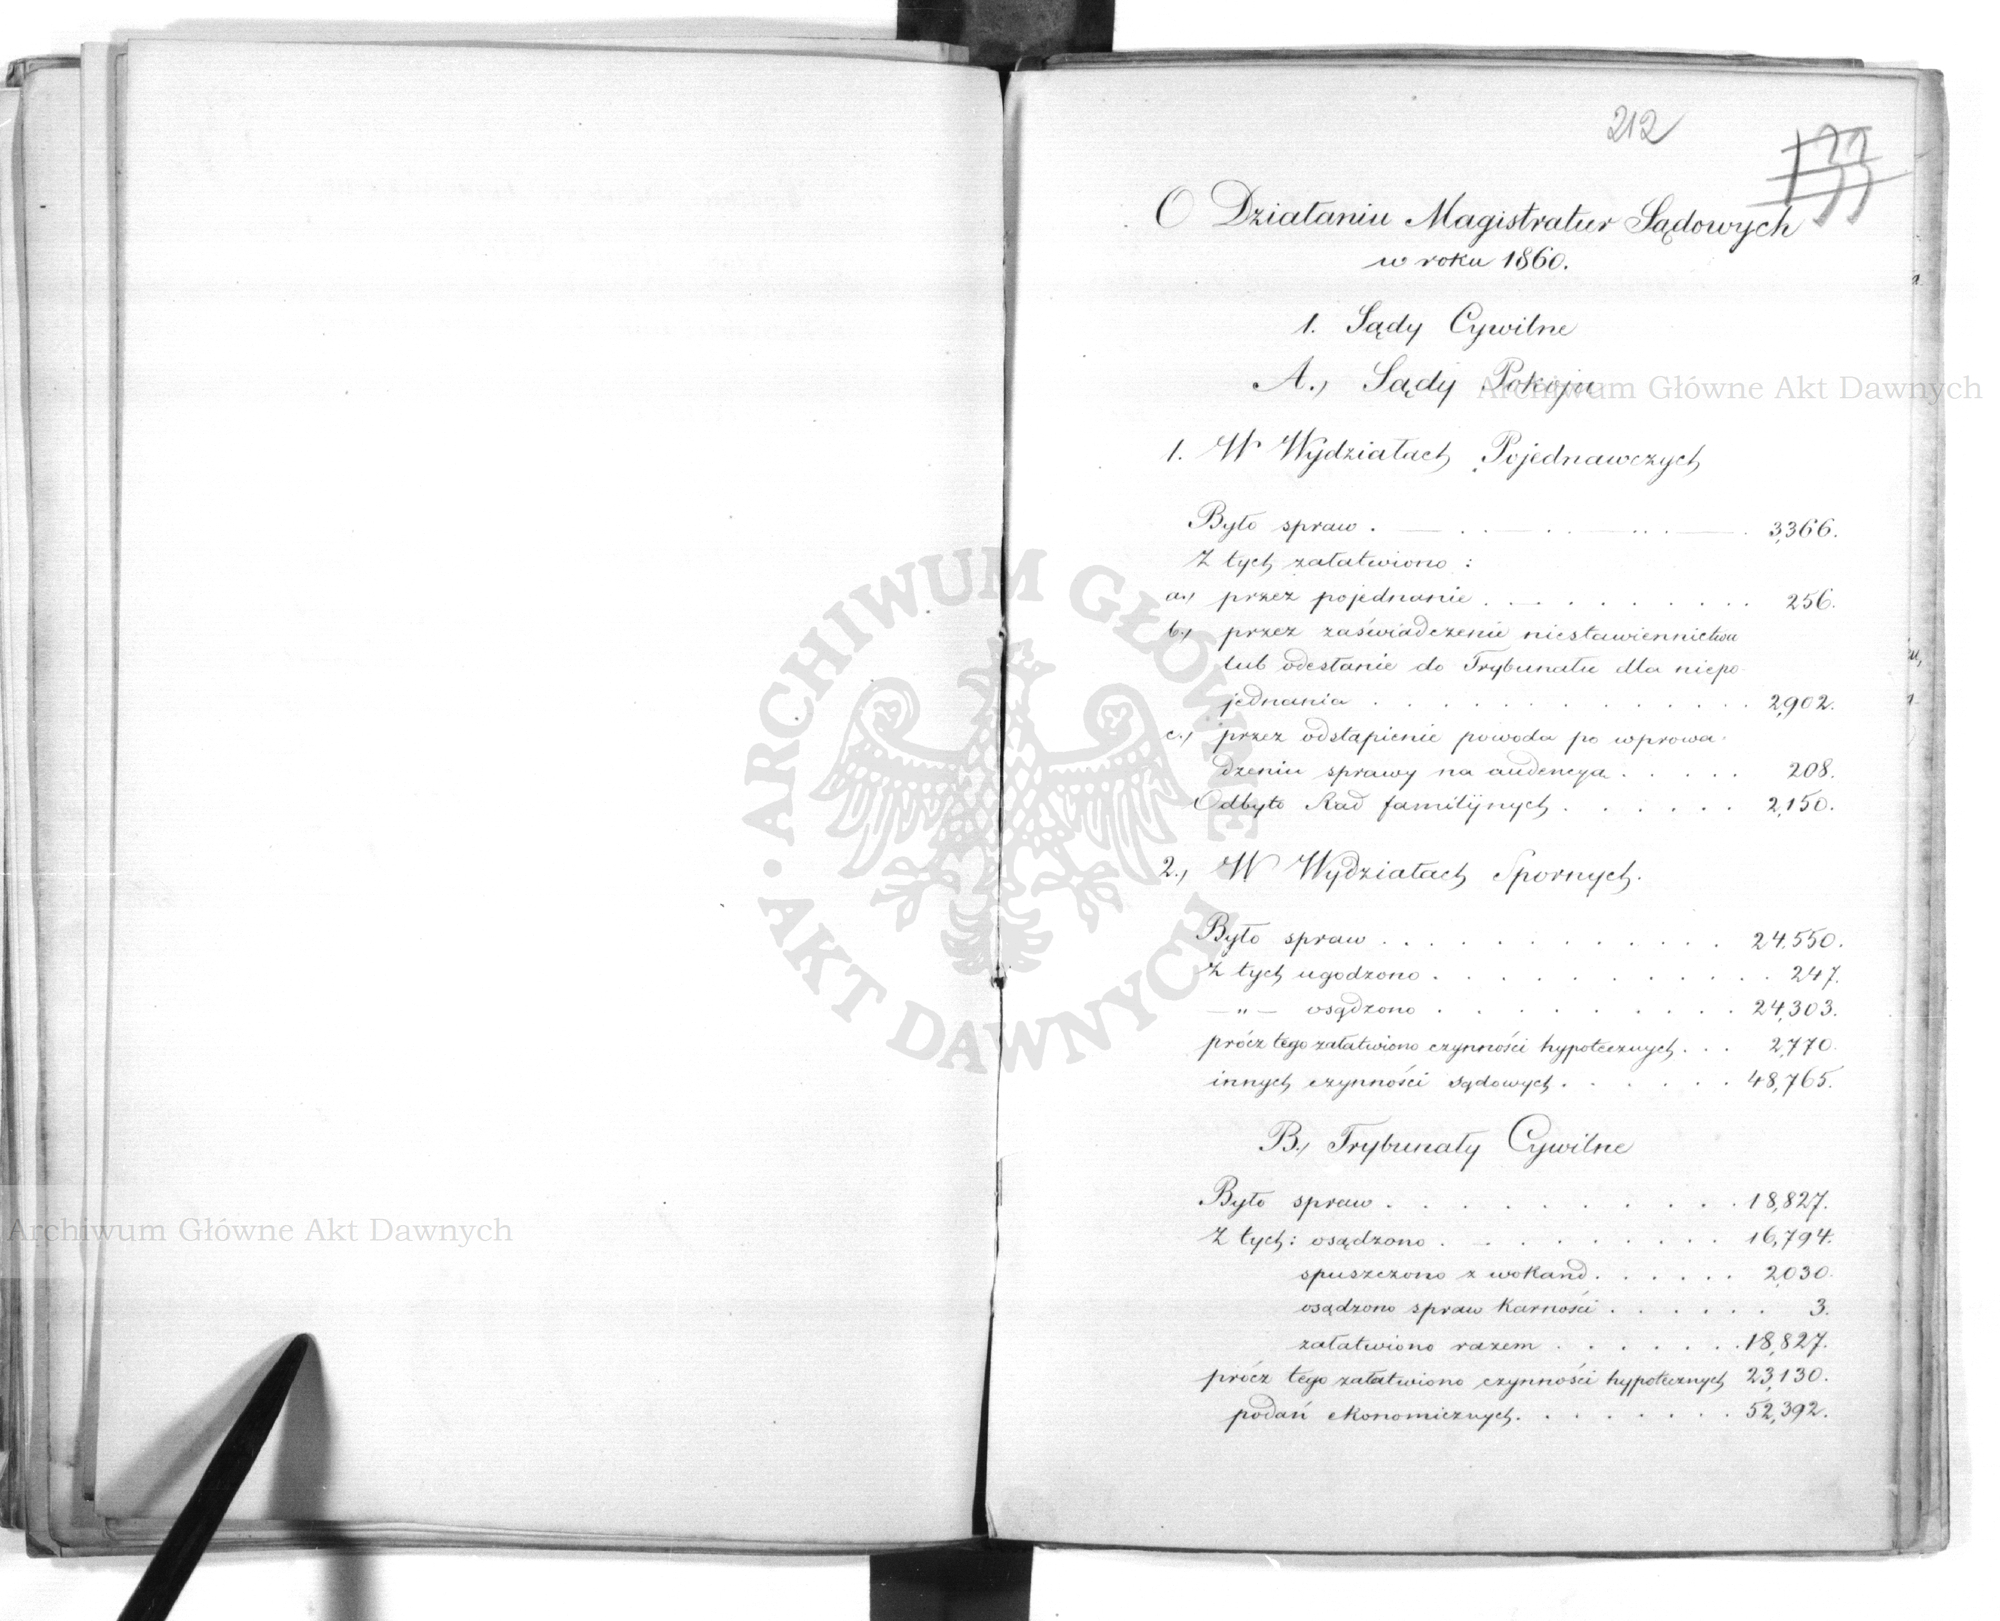 212
133
O Działaniu Magistratur Sądowych
w roku 1860.
1. Sądy Cywilne
A., Sądy Pokoju
Archiwum Główne Akt Dawnych
1. W Wydziałach Pojednawczych
Było spraw . 3,366.
Z tych załatwiono :
a., przez pojednanie . . . . . . . . . 256.
b., przez zaświadczenie niestawiennictwa
lub odesłanie do Trybunału dla niepo-
jednania . . . . . . . . . . . . . 2,902.
c., przez odstąpienie powoda po wprowa-
dzeniu sprawy na audencyą . . . . . 208.
Odbyto Rad familijnych . . . . . . 2,150.
ARCHIWUM GŁÓWNE · AKT DAWNYCH
2., W Wydziałach Spornych.
Było spraw . . . . . . . . . . . 24.550.
Z tych ugodzono . . . . . . . . . . . 247.
— " — osądzono . . . . . . . . . 24,303.
prócz tego załatwiono czynności hypotecznych . . . 2,770.
innych czynności sądowych . . . . . . 48,765.
B., Trybunały Cywilne
Było spraw . . . . . . . . . . . 18,827.
Z tych: osądzono . . . . . . . . . 16,794.
spuszczono z wokand . . . . . . 2,030.
osądzono spraw karności . . . . . . 3.
załatwiono razem . . . . . . . 18,827.
prócz tego załatwiono czynności hypotecznych 23,130.
podań ekonomicznych . . . . . . . . 52,392.
Archiwum Główne Akt Dawnych